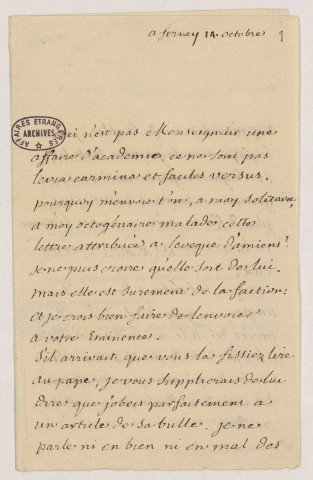 a ferney 14. octobre 1
AFFAIRES ETRANGERES
ARCHIVES
ci n'est pas Monseigneur une
affaire d'academie. ce ne sont pas
levia carmina et faciles versus.
pourquoy m'envoie t'on, a moy solitaire,
a moy octogénaire malade cette
lettre attribuée a leveque d'amiens?
je ne puis croire qu'elle soit de lui.
mais elle est surement de la faction:
et je crois bien faire de lenvoier
a votre Eminence.
s'il arrivait que vous la fissiez lire
au pape, je vous supplierais de lui
dire que jobeis parfaitement a
un article de sa bulle. je ne
parle ni en bien ni en mal des